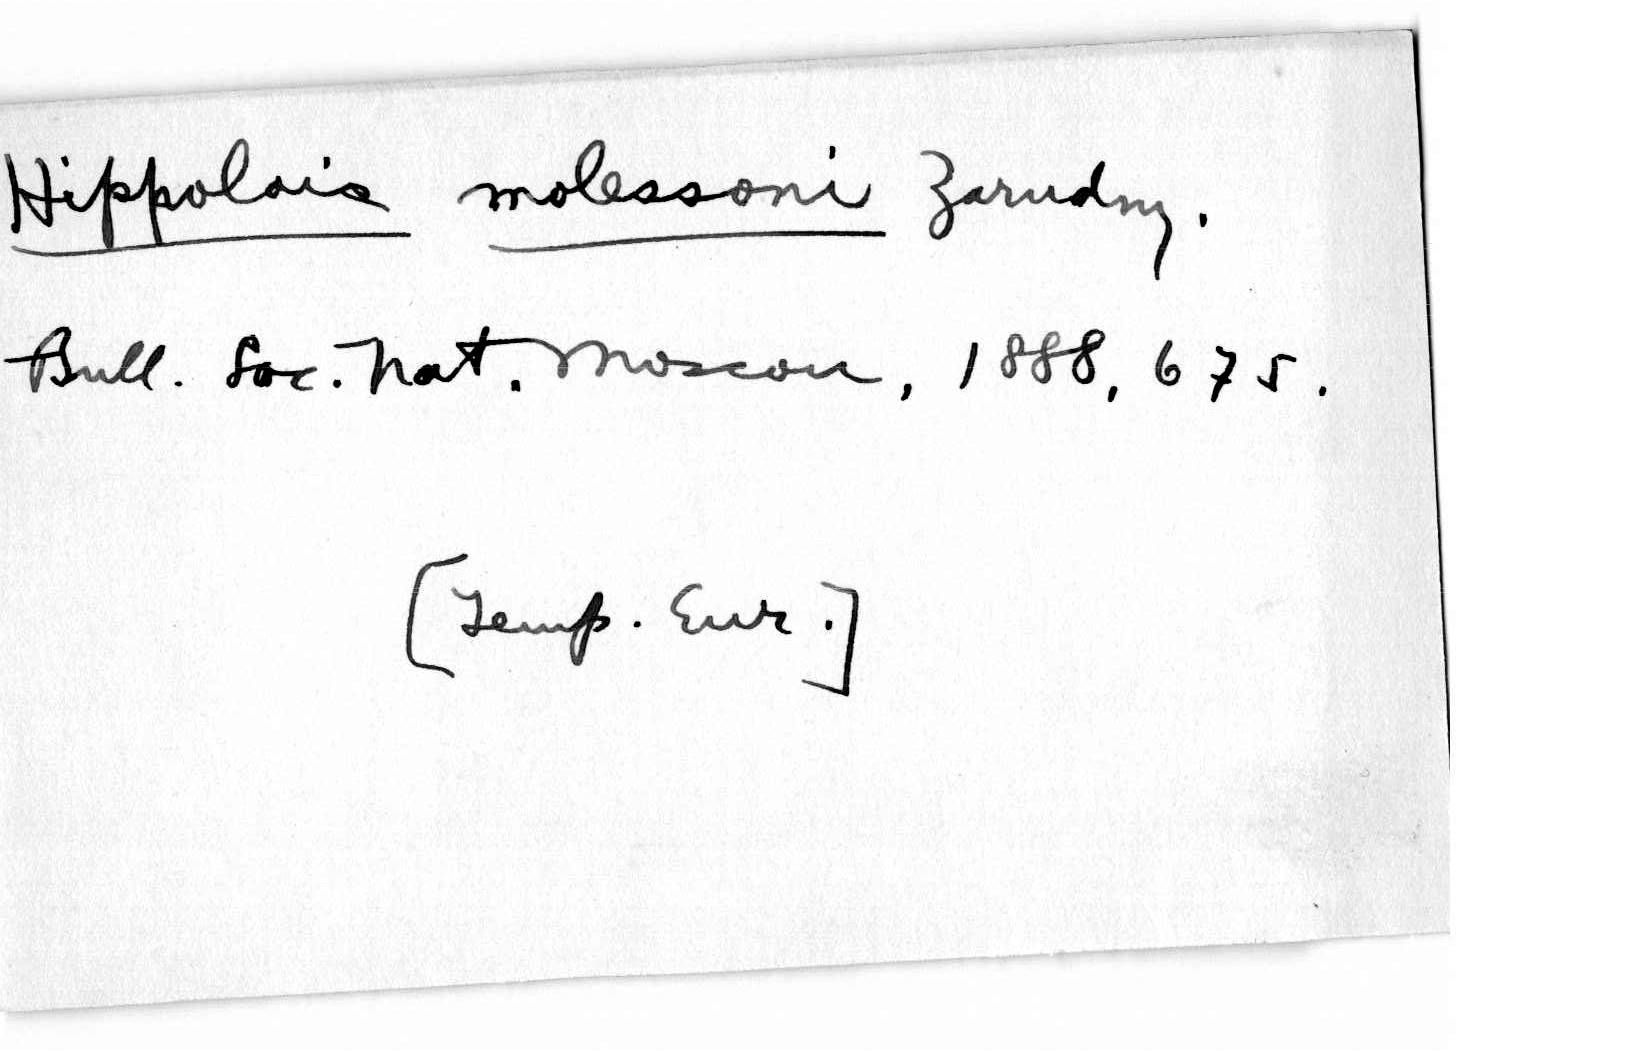 Hippolais molessoni Zarudny.
Bull. Soc. Nat. Moscou, 1888, 675.
[Temp. Eur.]